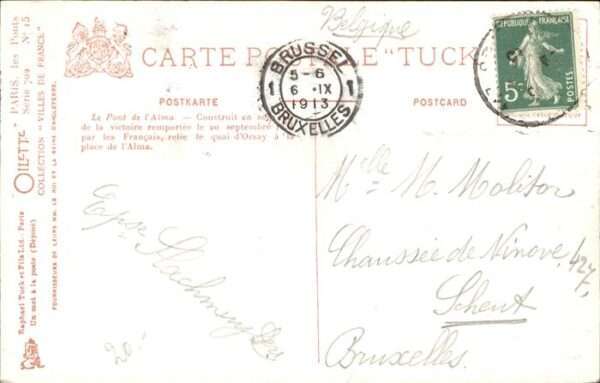 Belgique
CARTE POSTALE "TUCK
POSTKARTE
POSTCARD
Le Pont de l'Alma. — Construit en
de la victoire remportée le 20 septembre
par les Français, relie le quai d'Orsay à la
place de l'Alma.
BRUSSEL
5-6
1 6 IX 1
1913
BRUXELLES
REPUBLIQUE FRANÇAISE
5c
POSTES
Mlle M. Molitor
Chaussée de Ninove 427,
Scheut
Bruxelles.
20.
OILETTE" PARIS, les Ponts
Série 709 No 15
COLLECTION "VILLES DE FRANCE"
FOURNISSEURS DE LEURS MM. LE ROI ET LA REINE D'ANGLETERRE.
Raphael Tuck et Fils Ltd.-Paris
Un mot à la poste (Déposé)